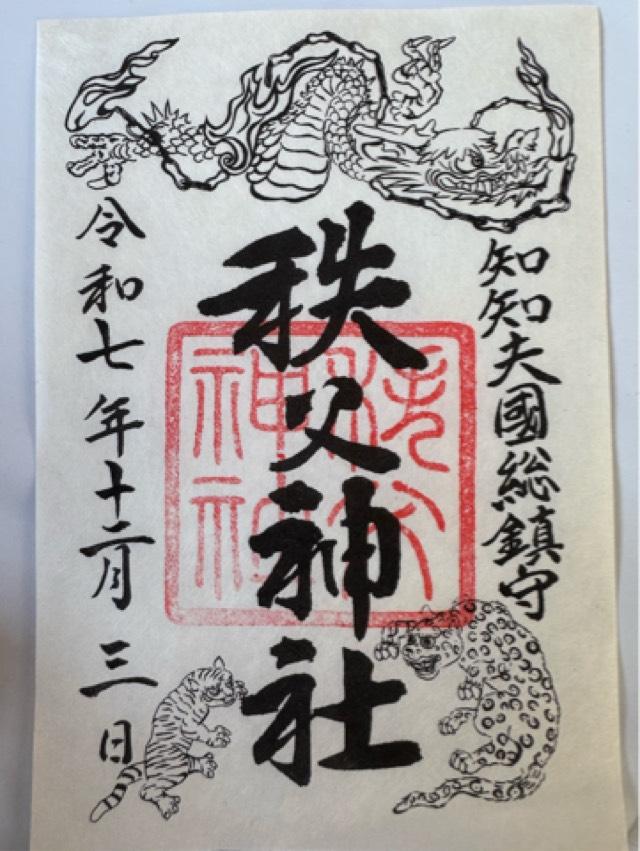 知知夫國総鎮守
秩父神社
秩父神社
令和七年十二月三日